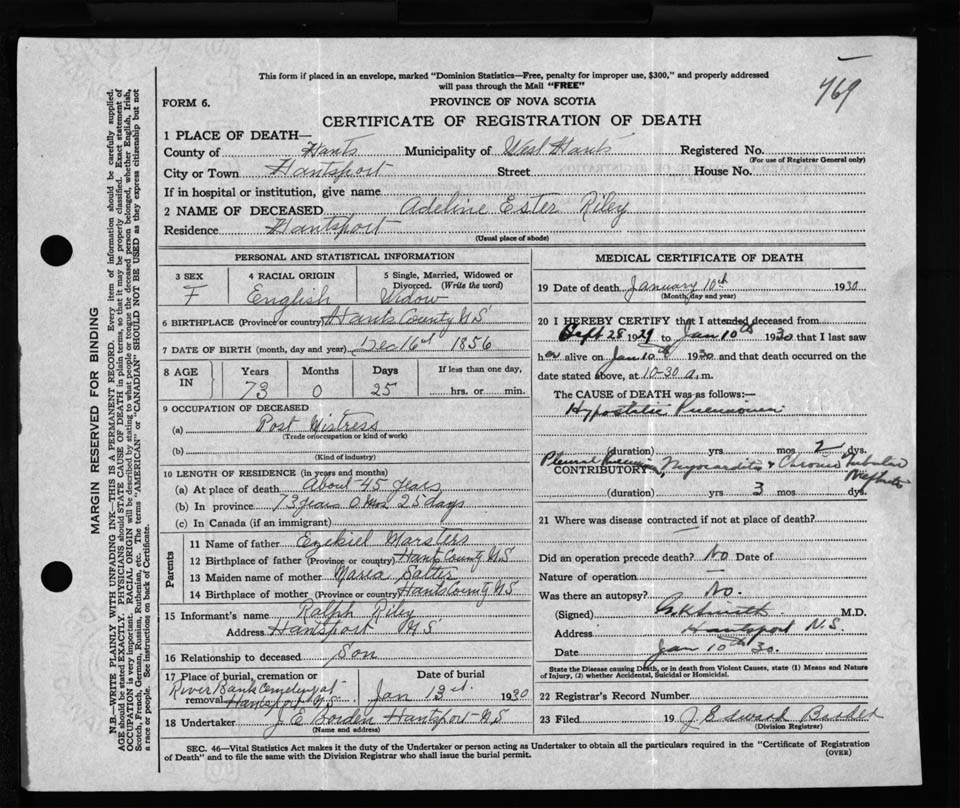 This form if placed in an envelope, marked "Dominion Statistics—Free, penalty for improper use, $300," and properly addressed
will pass through the Mail "FREE"
769
FORM 6.
PROVINCE OF NOVA SCOTIA
CERTIFICATE OF REGISTRATION OF DEATH
1 PLACE OF DEATH—
County of Hants Municipality of West Hants Registered No.
(For use of Registrar General only)
City or Town Hantsport Street House No.
If in hospital or institution, give name
2 NAME OF DECEASED Adeline Ester Riley
Residence Hantsport
(Usual place of abode)
PERSONAL AND STATISTICAL INFORMATION
3 SEX 4 RACIAL ORIGIN 5 Single, Married, Widowed or
Divorced. (Write the word)
F English Widow
6 BIRTHPLACE (Province or country) Hants County N S
7 DATE OF BIRTH (month, day and year) Dec 16st 1856
8 AGE IN Years Months Days If less than one day,
73 0 25 hrs. or min.
9 OCCUPATION OF DECEASED
(a) Post Mistress
(Trade or occupation or kind of work)
(b)
(Kind of industry)
10 LENGTH OF RESIDENCE (in years and months)
(a) At place of death About 45 years
(b) In province 73 years 0 Mos 25 days
(c) In Canada (if an immigrant)
Parents
11 Name of father Ezekiel Marsters
12 Birthplace of father (Province or country) Hants County N.S
13 Maiden name of mother Maria
14 Birthplace of mother (Province or country) Hants County N S
15 Informant's name Ralph Riley
Address Hantsport N S
16 Relationship to deceased Son
17 Place of burial, cremation or removal Date of burial
River Bank Cemetery at Hantsport N S Jan 13st. 1930
18 Undertaker J. E Borden Hantsport N S
(Name and address)
MEDICAL CERTIFICATE OF DEATH
19 Date of death January 10th 1930
(Month, day and year)
20 I HEREBY CERTIFY that I attended deceased from
Sept 28 1929 to Jan 10th 1930 that I last saw
her alive on Jan 10th 1930 and that death occurred on the
date stated above, at 10-30 a.m.
The CAUSE of DEATH was as follows:—
Hypostatic Pneumonia
(duration) yrs. mos 2 dys.
CONTRIBUTORY Myocarditis & Chronic Tubular
Nephritis
(duration) yrs 3 mos dys.
21 Where was disease contracted if not at place of death?
Did an operation precede death? No Date of
Nature of operation —
Was there an autopsy? No.
(Signed) Smith M.D.
Address Hantsport N.S.
Date Jan 10th 30.
State the Disease causing Death, or in death from Violent Causes, state (1) Means and Nature
of Injury, (2) whether Accidental, Suicidal or Homicidal.
22 Registrar's Record Number
23 Filed 19 J Edward Borden
(Division Registrar)
SEC. 46—Vital Statistics Act makes it the duty of the Undertaker or person acting as Undertaker to obtain all the particulars required in the "Certificate of Registration
of Death" and to file the same with the Division Registrar who shall issue the burial permit.
(OVER)
MARGIN RESERVED FOR BINDING
N.B.—WRITE PLAINLY WITH UNFADING INK—THIS IS A PERMANENT RECORD. Every item of information should be carefully supplied.
AGE should be stated EXACTLY. PHYSICIANS should STATE CAUSE OF DEATH in plain terms, so that it may be properly classified. Exact statement of
OCCUPATION is very important. RACIAL ORIGIN will be described by stating to what people or tongue the deceased person belonged, whether English, Irish,
Scotch, French, German, Russian, Ruthenian, etc. The terms "AMERICAN" or "CANADIAN" SHOULD NOT BE USED as they express citizenship but not
a race or people. See instructions on back of Certificate.